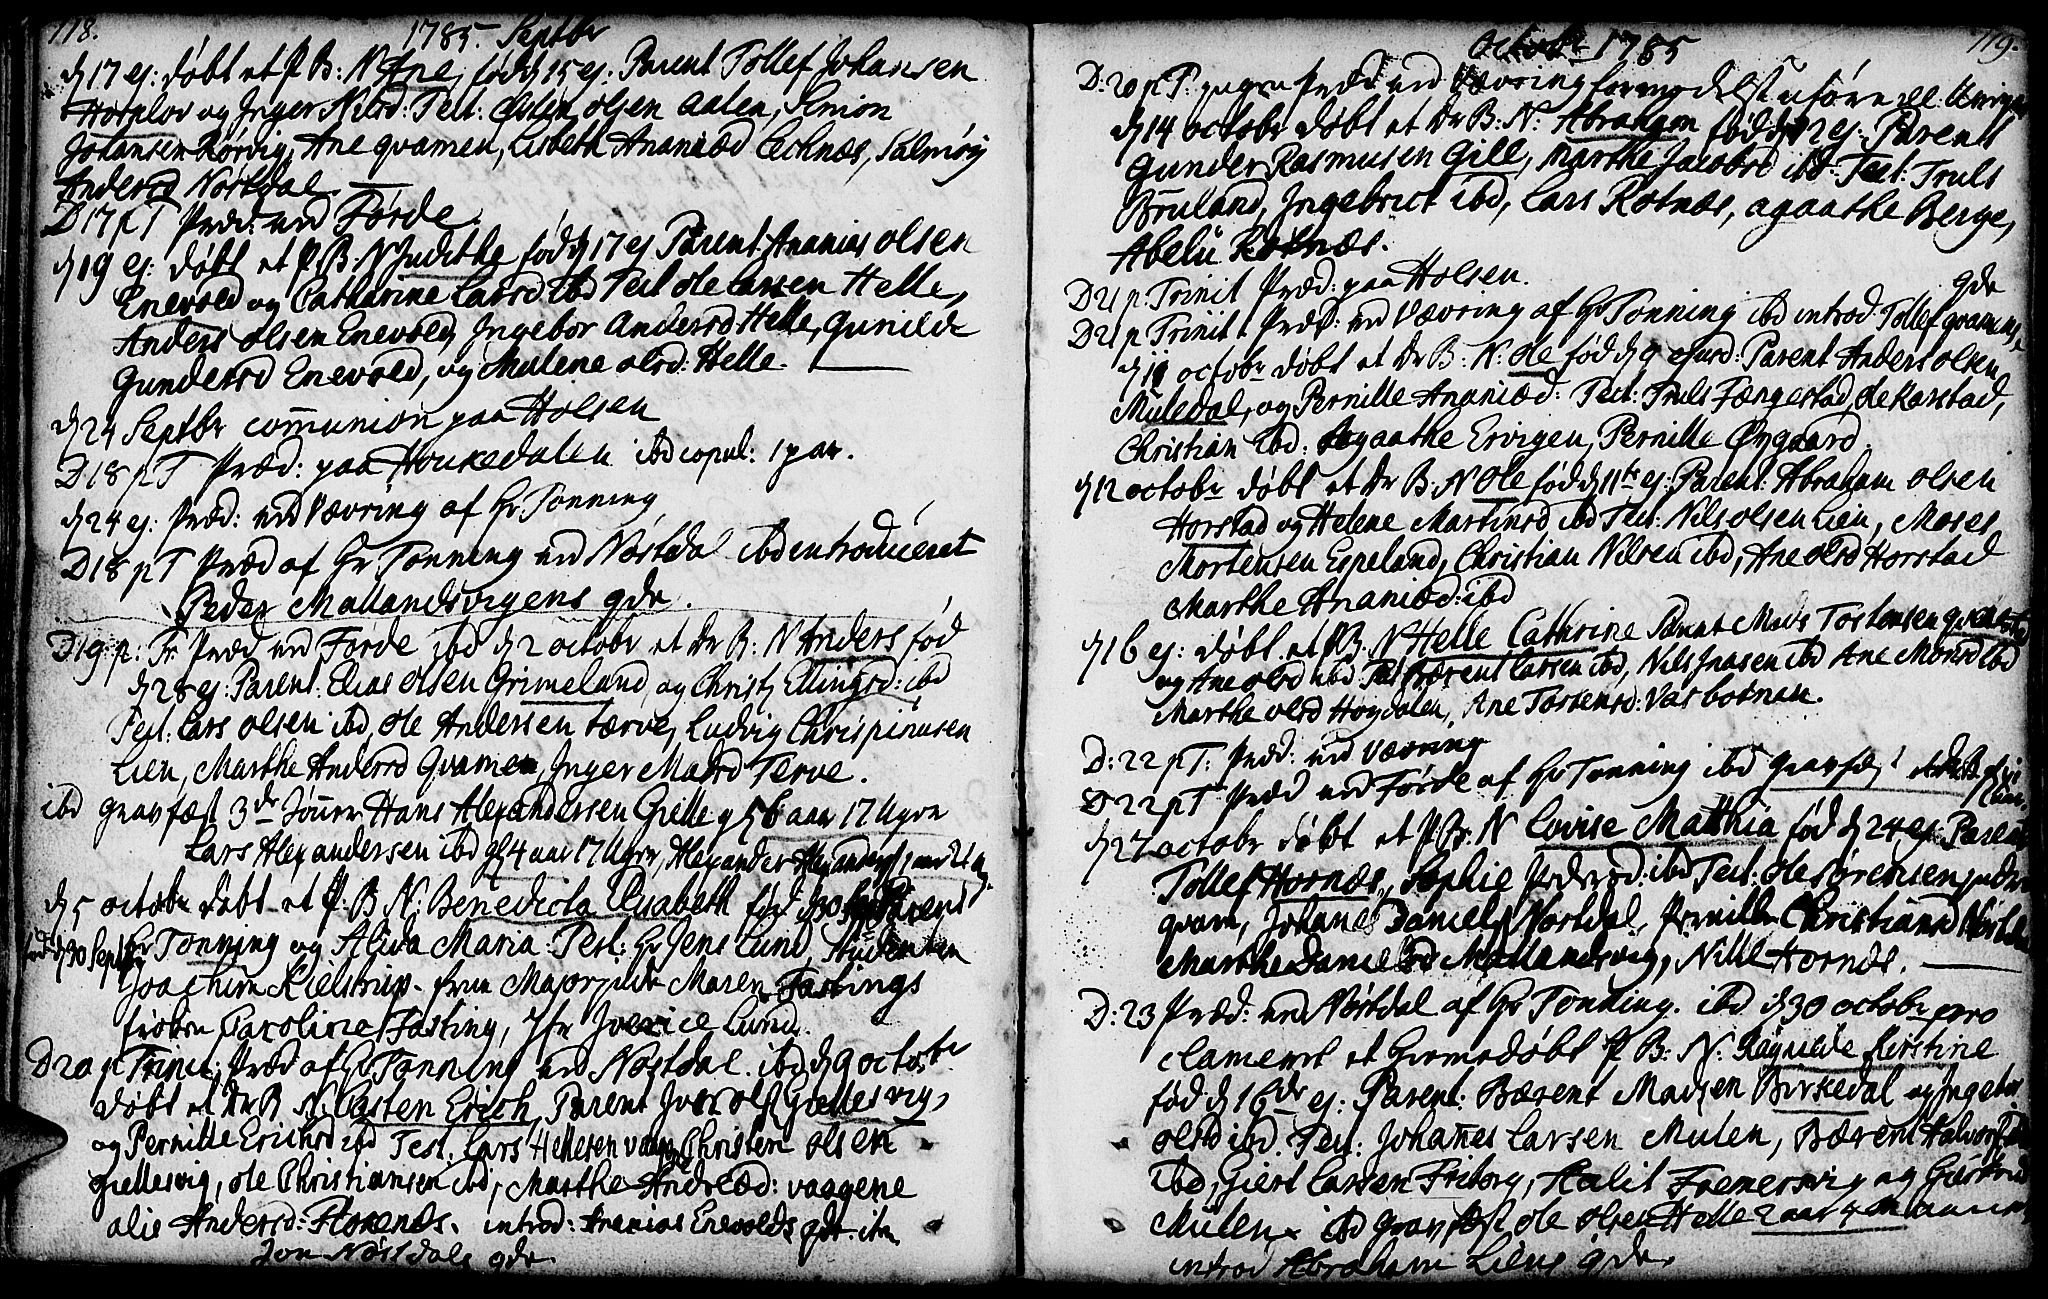 118.
1785. Septbr
d 17 ej: døbt et P B: N Ane, fød d 15 ej. Parent Tollef Johansen
Hornlov og Inger Nilsd: Test: Olsen Aalen, Simon
Johansen Rørvig, Ane qvamen, Lisbeth Ananiæd Lecknæs, Salmøy
Andersd Nostdal
D 17 p T Præd: ved Førde.
d 19 ej: døbt et P. B: N Judithe fød d 17 ej Parent: Ananias olsen
Enevold og Catharine Larsd ibd Test ole Larssen Helle,
Anders olsen Enevold, Ingebor Andersd Helle, Gunilde
Gundersd Enevold, og Malene olsd: Helle.
d 24 Septbr communion paa Holsen
D 18 p T Præd: paa Houkedalen ibd copul: 1 par.
d 24 ej: Præd: ved Vævring af Hr Tonning
D 18 p T Præd af Hr Tonning ved Nostdal ibd introduceret
Peder Mallandsvigens qde.
D 19 p: Tr Præd ved Førde ibd d 2 octobr et Dr B: N Anders fød
d 28 ej: Parent: Elias olsen Grimeland, og Christj Ellingsd: ibd
Test: Lars olsen ibd, ole Andersen tærve, Ludvig Chrispinusen
Lien, Marthe Andersd Qvamen, Inger Madsd Terve.
ibd gravfæst 3de Hans Alexandersen Gielle g 56 aar 17 Ugr
Lars Alexandersen ibd g 4 aar 17 Ugr, Alexander
d 5 octobr døbt et P. B N: Benedicta Elisabeth fød d 30 Parent
fød d 30 Septbr Hr Tonning og Alida Maria: Test: Hr Jens Lund, Studenten
Joachum Kielstrup. frue Majorinde Maren Fastings
frøken Caroline Fasting, Jfr Lund.
D 20 p Trinit: Præd af Hr Tonning ved Nostdal. ibd d 9 octobr
døbt et Dr B N: Casten Erich, Parent Iver ols Giellesvig,
og Pernille Erichsd ibd Test. Lars Hellesen vaage Christen olsen
Giellesvig, ole Christiansen ibd, Marthe Andreæd: vaagene
alis Andersd: Florenæs. introd: Ananias Enevolds qde. item
Jon Nostdals qde.
octobr 1785
119.
D: 20 p T: ingen Præd ved Vævring formedelst uføre
d 14 octobr døbt et Dr B: N: Abraham fød d 12 ej: Parent
Gunder Rasmusen Gill, Marthe Jacobsd ibd. Test: Truls
Bruland, Ingebrict ibd, Lars Rotnæs, agaathe Berge,
Abelu Rotnæs.
D 21 p. Trinit Præd: paa Holsen.
qde
D 21 p Trinit. Præd: ved Vævring af Hr Tonning ibd introd: Tollef qvamens
d 11 octobr døbt et Dr B: N: ole fød d 9 Parent Anders olsen
Muledal, og Pernille Ananiæd: Test: Truls Fængestad, ole Karstad,
Christian ibd: Agaathe Ervigen, Pernille Øygaard.
d 12 octobr døbt et Dr B: N Ole fød d 11te ej: Parent: Abraham olsen
Horstad og Helene Martinsd ibd Test: Nils olsen Lien, Moses
Mortensen Espeland, Christian Nilsen ibd, Ane olsd Horstad
Marthe Ananiæd: ibd
d 16 ej: døbt et P B. N Helle Cathrine Parent Mads Tostensen
og Ane olsd ibd Test Bærent Larsen ibd, Nils Jnasen ibd Ane Monsd ibd
Marthe olsd Høydalen, Ane Tostensd: Vasbotnan.
D: 22 p T: Præd: ved Vævring
D 22 p T Præd ved Førde af Hr Tonning ibd gravfæst
d 27 octobr døbt et P. B: N Lovise Mathia fød d 24 ej: Parent
Tollef Hornæs, Sophie Pedersd: ibd Test: Ole Sørensen
qvam, Johanes Daniels Nostdal, Pernille Christiansd
Marthe Danielsd Mallandsvig, Nille Hornæs.
D: 23 Præd: ved Nostdal af Hr Tonning. ibd d 30 octobr pro
clameret et Hiemedøbt P B: N: Ragnilde Kirstine
fød d 16de ej: Parent: Bærent Madsen Birkedal og Ingebor
olsd ibd. Test: Johannes Larsen Mulen, Bærent Halvors
ibd, Giert Larsen Friborg, Halit Fremersvig og
Mulen. ibd gravfæst ole olsen Helle 2 aar
introd Abraham Liens qde